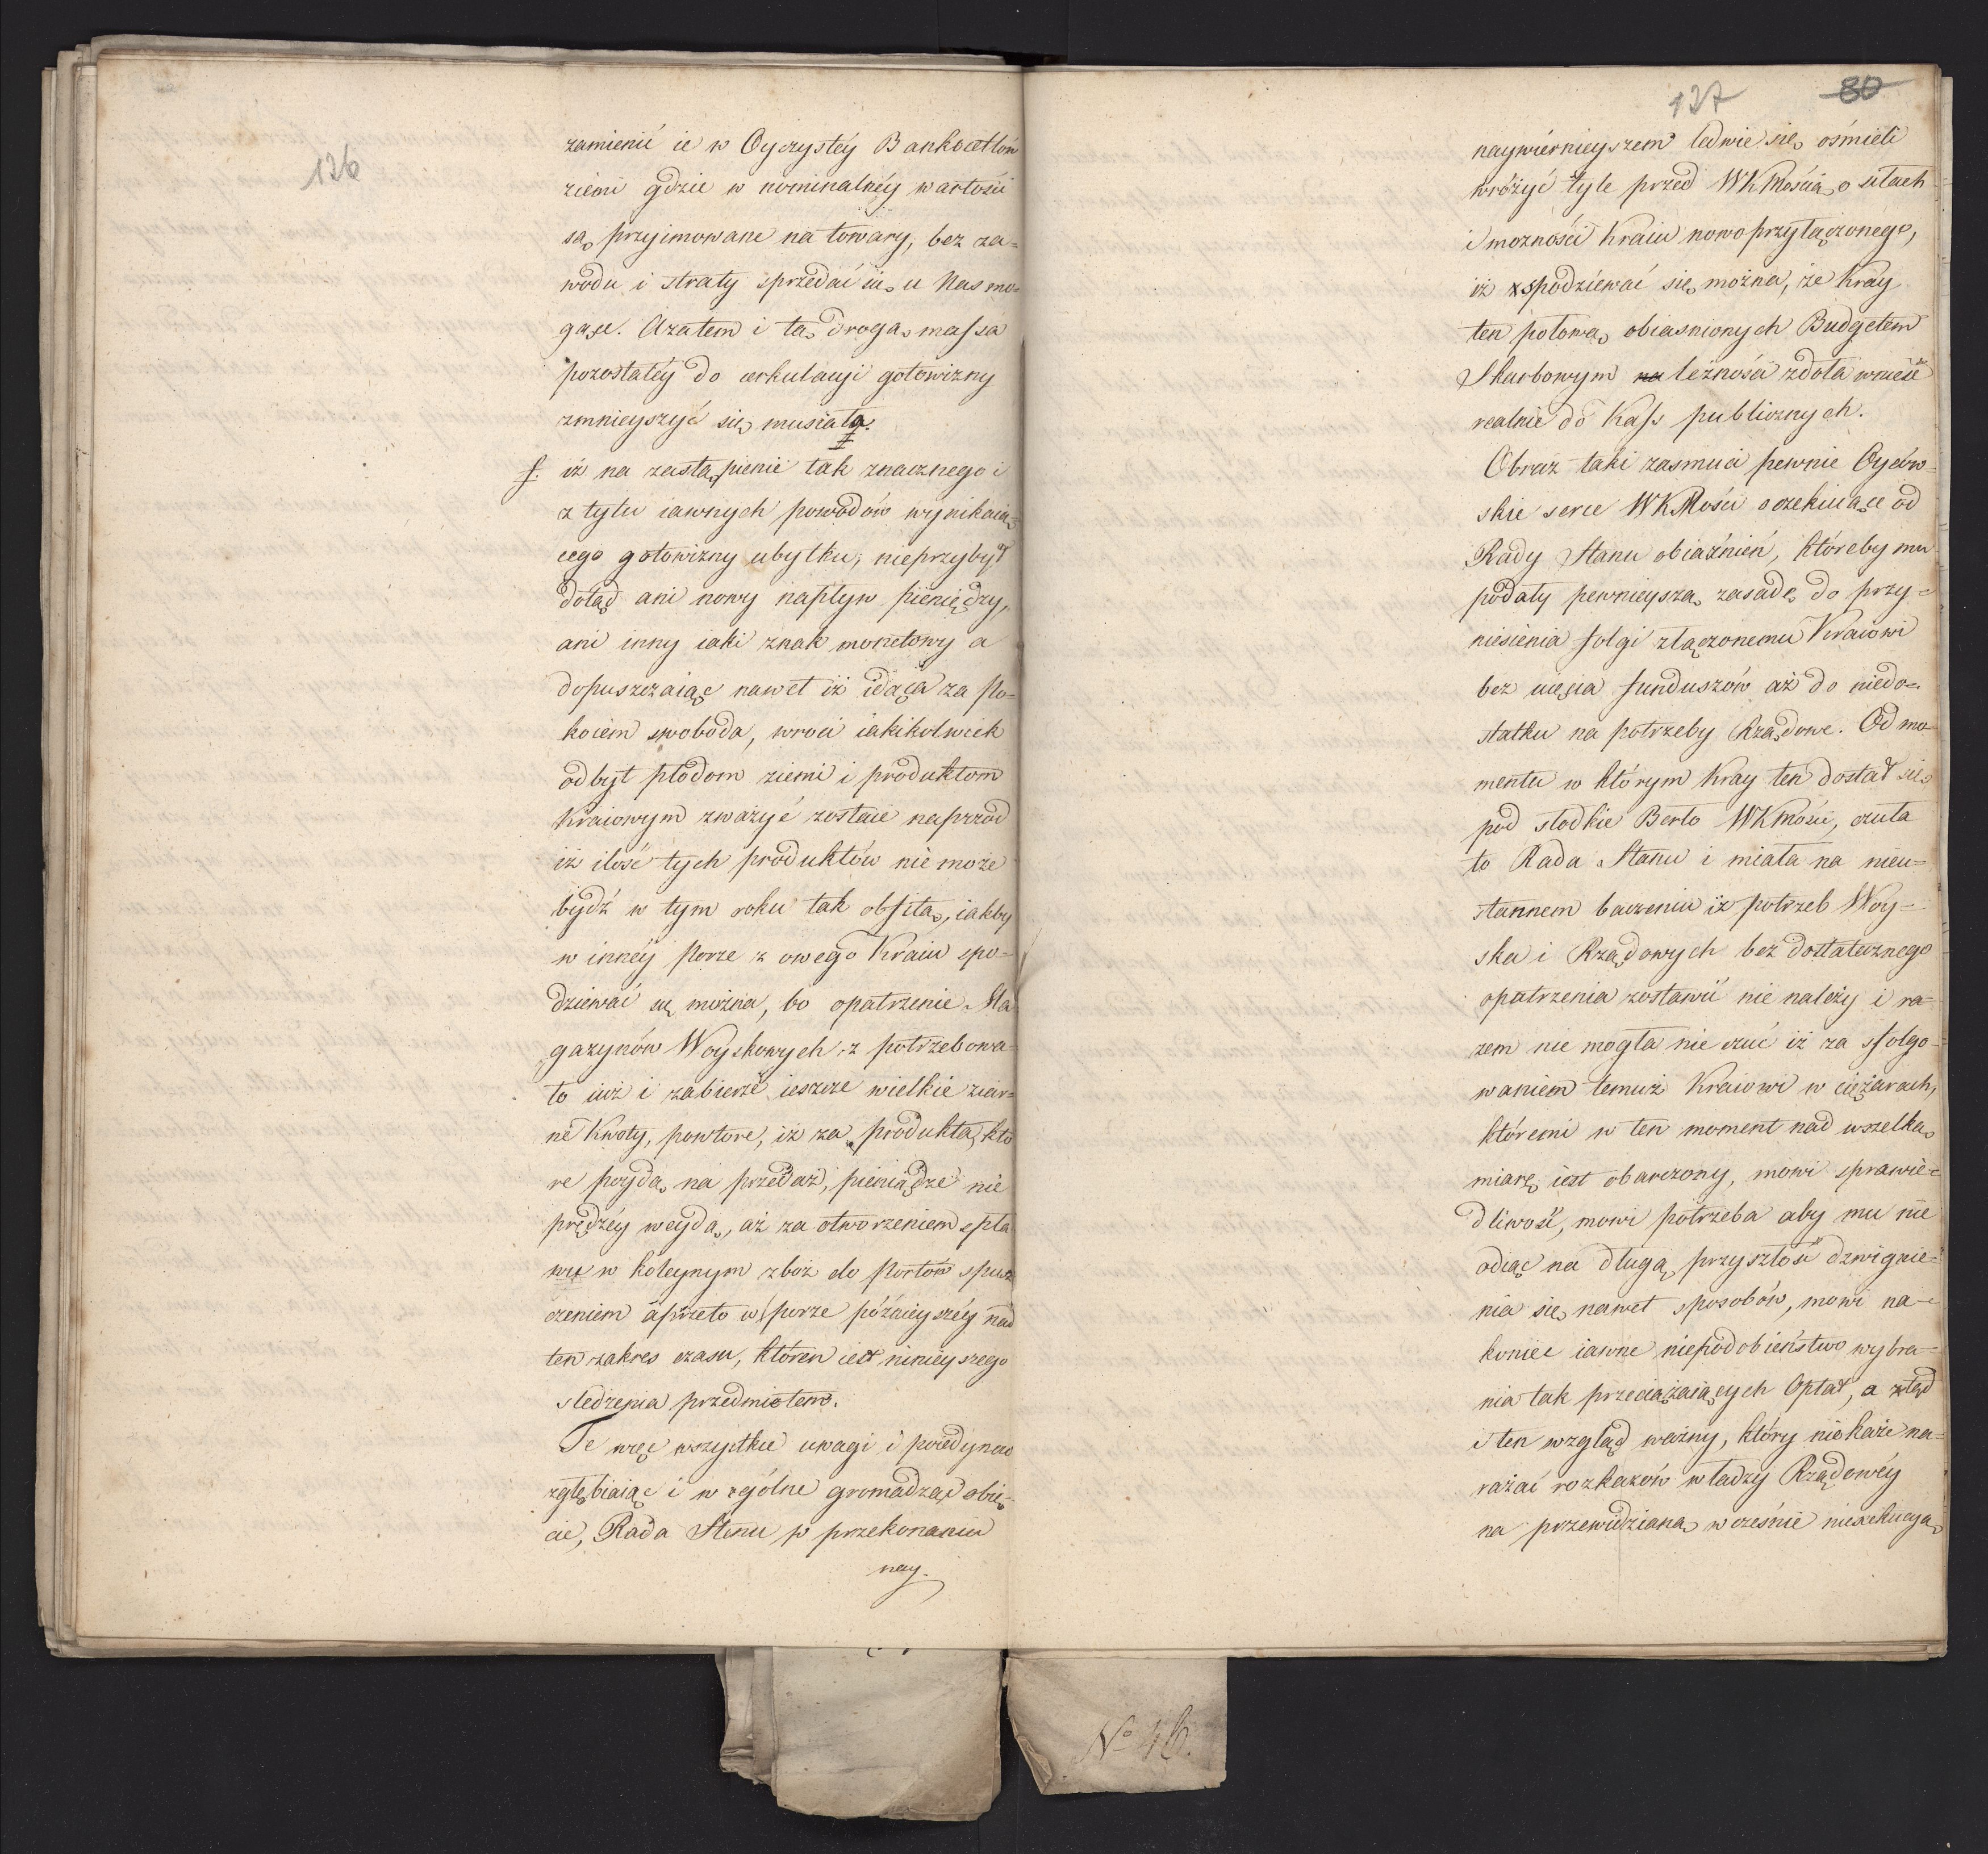 126
zamienić ie w Oyczystéy Bankocetlów
ziemi gdzie w nominalnéy wartości
są przyimowane na towary, bez za=
wodu i straty sprzedać się u Nas mo=
gące. Azatem i tą drogą massa
pozostałéy do cerkulacyi gotowizny
zmnieyszyć się musiała.
f. iż na zastąpienie tak znacznego i
z tylu iawnych powodów wynikaią=
cego gotowizny ubytku, nieprzybył
dotąd ani nowy napływ pieniędzy,
ani inny iaki znak monetowy a
dopuszczaiąc nawet iż idąca za Po=
koiem swoboda, wroci iakikolwiek
odbyt płodom ziemi i produktom
Kraiowym zważyć zostaie naprzod
iż ilość tych produktów nie może
bydź w tym roku tak obfitą, iakby
w innéy porze z owego Kraiu spo=
dziewać się można, bo opatrzenie Ma
gazynów Woyskowych z potrzebowa=
ło iuż i zabierze ieszcze wielkie ziar=
ne Kwoty, powtore, iż za produkta, kto
re poydą na przedaż, pieniądze nie
prędzéy weydą, aż za otworzeniem spła
wu w koleynym zboż do Portów spusz
czeniem aprzeto w porze póżnieyszéy nad
ten zakres czasu, któren iest ninieyszego
sledzenia przedmiotem.
Te więc wszystkie uwagi i poiedynczo
zgłębiaiąc i w ogólne gromadząc obię=
cie, Rada Stanu w przekonaniu
nay.
127 80
naywiérnieyszem ledwie się ośmieli
wróżyć tyle przed WKMością o siłach
i możności Kraiu nowoprzyłączonego,
iż spodziewać się można, że Kray
ten połową obiasnionych Budgetem
Skarbowym należności zdoła wnieść
realnie do Kass publicznych.
Obraz taki zasmuci pewnie Oycow=
skie serce WKMości oczekiuące od
Rady Stanu obiaźnień, któreby mu
podały pewnieyszą zasadę do przy=
niesienia folgi złączonemu Kraiowi
bez uięcia funduszów aż do niedo=
statku na potrzeby Rządowe. Od mo=
mentu w którym Kray ten dostał się
pod słodkie Berło WKMości, czuła
to Rada Stanu i miała na nieu=
stannem baczeniu iż potrzeb Woy=
ska i Rządowych bez dostatecznego
opatrzenia zostawić nie należy i ra=
zem nie mogła nie czuć iż za sfolgo=
waniem temuż Kraiowi w ciężarach,
któremi w ten moment nad wszelką
miarę iest obarczony, mowi sprawie=
dliwość, mowi potrzeba aby mu nie
odiąć na długą przyszłość dzwignie=
nia się nawet sposobów, mowi na=
koniec iawne niepodobieństwo wybra=
nia tak przeciążaiących Opłat, a ztąd
i ten wzgląd ważny, który niekaże na=
rażać rozkazów władzy Rządowéy
na przewidzianą wcześnie niexekucyą
No 46.